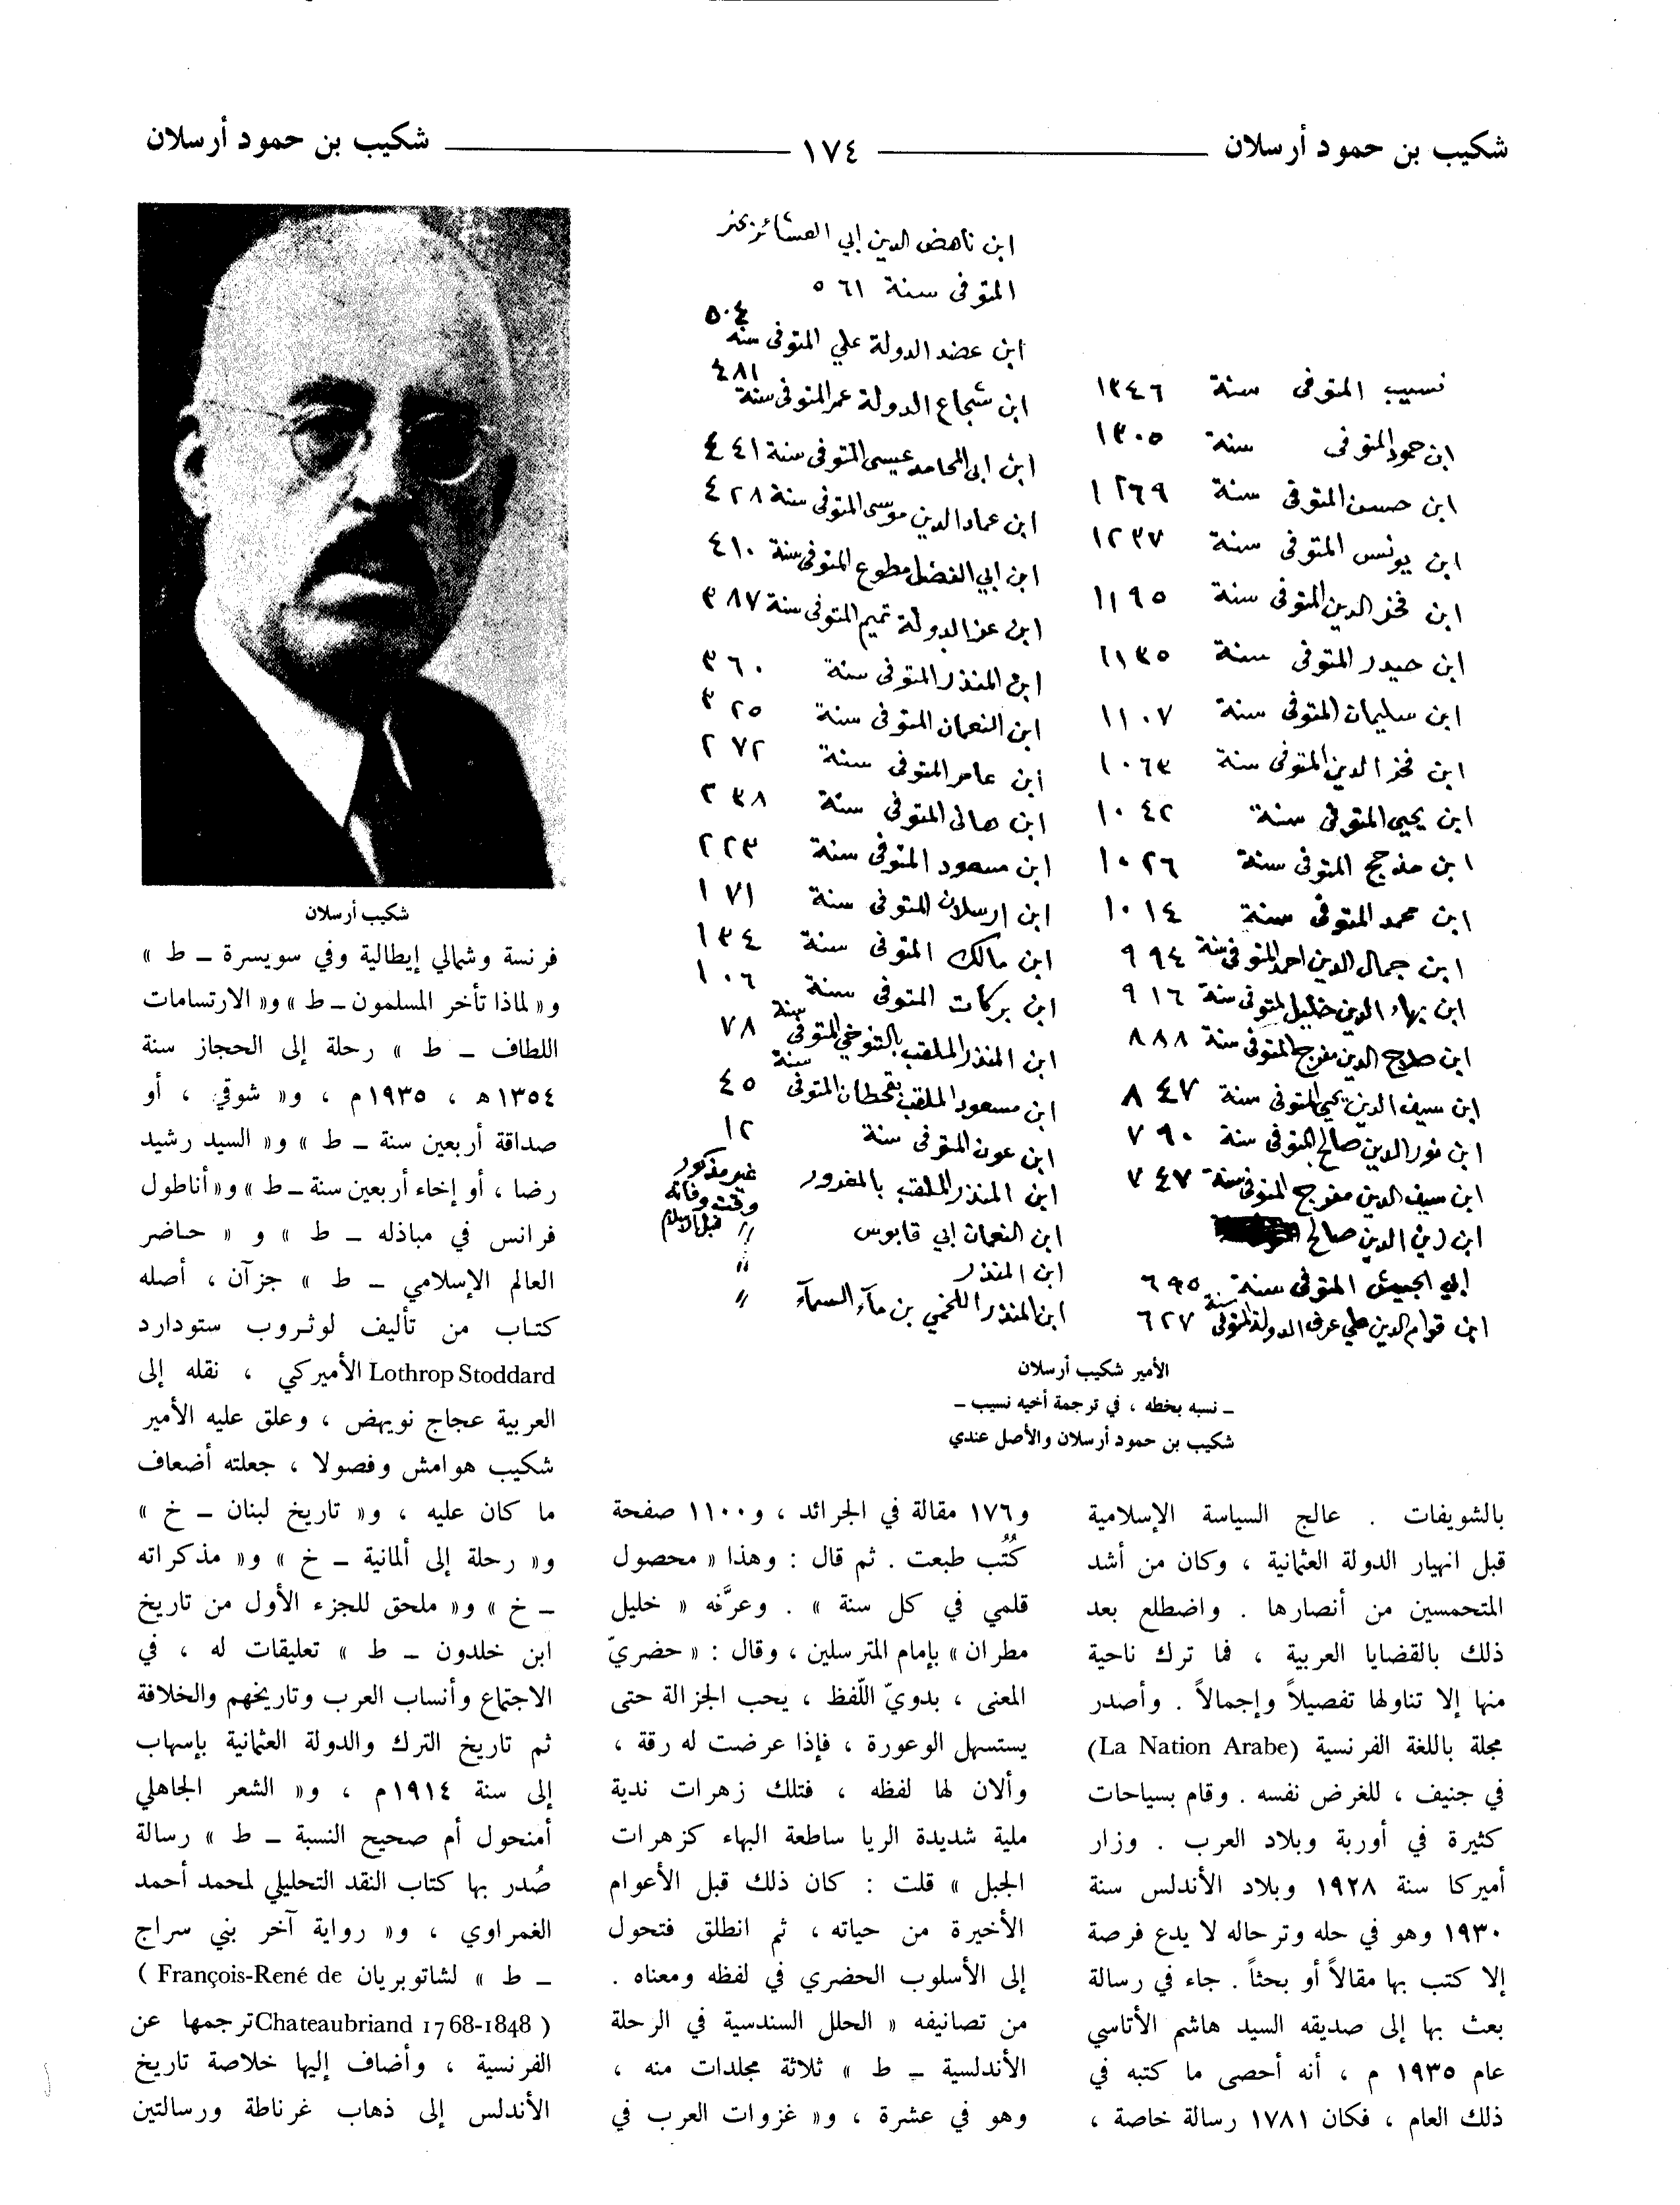 شكيب بن حمود أرسلان ١٧٤ شكيب بن حمود أرسلان
نسيب المتوفى سنة ١٣٤٦
ابن حمود المتوفى سنة ١٣٠٥
ابن حسن المتوفى سنة ١٢٦٩
ابن يونس المتوفى سنة ١٢٣٧
ابن فخر الدين المتوفى سنة ١١٩٥
ابن حيدر المتوفى سنة ١١٣٥
ابن سليمان المتوفى سنة ١١٠٧
ابن فخر الدين المتوفى سنة ١٠٦٣
ابن يحيى المتوفى سنة ١٠٤٢
ابن مذحج المتوفى سنة ١٠٢٦
ابن محمد المتوفى سنة ١٠١٤
ابن جمال الدين احمد المتوفى سنة ٩٩٤
ابن بهاء الدين خليل المتوفى سنة ٩١٦
ابن صلاح الدين مفرج المتوفى سنة ٨٨٨
ابن سيف الدين يحيى المتوفى سنة ٨٤٧
ابن نور الدين صالح المتوفى سنة ٧٩٠
ابن سيف الدين مفرج المتوفى سنة ٧٤٧
ابن زين الدين صالح
ابي الجيش المتوفى سنة ٦٩٥
ابن قوام الدين علي عرف الدولة المتوفى سنة ٦٢٧
ابن ناهض الدين ابي العشائر بحتر
المتوفى سنة ٥٦١
ابن عضد الدولة علي المتوفى سنة ٥٠٤
ابن شجاع الدولة عمر المتوفى سنة ٤٨١
ابن ابي المحامد عيسى المتوفى سنة ٤٤١
ابن عماد الدين موسى المتوفى سنة ٤٢٨
ابن ابي الفضل مطوع المتوفى سنة ٤١٠
ابن عز الدولة تميم المتوفى سنة ٣٨٧
ابن المنذر المتوفى سنة ٣٦٠
ابن النعمان المتوفى سنة ٣٢٥
ابن عامر المتوفى سنة ٢٧٢
ابن هانى المتوفى سنة ٢٣٨
ابن مسعود المتوفى سنة ٢٢٣
ابن ارسلان المتوفى سنة ١٧١
ابن مالك المتوفى سنة ١٣٤
ابن بركات المتوفى سنة ١٠٦
ابن المنذر الملقب بالتنوخي المتوفى سنة ٧٨
ابن مسعود الملقب بقحطان المتوفى سنة ٤٥
ابن عون المتوفى سنة ١٢
ابن المنذر الملقب بالمغرور غير مذكور وقت وفاته
ابن النعمان ابي قابوس " قبل الاسلام
ابن المنذر "
ابن المنذر اللخمي بن مآء السمآء "
الأمير شكيب أرسلان
ــ نسبه بخطه ، في ترجمة أخيه نسيب ــ
شكيب بن حمود أرسلان والأصل عندي
بالشويفات . عالج السياسة الإسلامية
قبل انهيار الدولة العثمانية ، وكان من أشد
المتحمسين من أنصارها . واضطلع بعد
ذلك بالقضايا العربية ، فما ترك ناحية
منها إلا تناولها تفصيلاً وإجمالاً . وأصدر
مجلة باللغة الفرنسية (La Nation Arabe)
في جنيف ، للغرض نفسه . وقام بسياحات
كثيرة في أوربة وبلاد العرب . وزار
أميركا سنة ١٩٢٨ وبلاد الأندلس سنة
١٩٣٠ وهو في حله وترحاله لا يدع فرصة
إلا كتب بها مقالاً أو بحثاً . جاء في رسالة
بعث بها إلى صديقه السيد هاشم الأتاسي
عام ١٩٣٥ م ، أنه أحصى ما كتبه في
ذلك العام ، فكان ١٧٨١ رسالة خاصة ،
و١٧٦ مقالة في الجرائد ، و١١٠٠ صفحة
كُتُب طبعت . ثم قال : وهذا « محصول
قلمي في كل سنة » . وعرَّفه « خليل
مطران » بإمام المترسلين ، وقال : « حضريّ
المعنى ، بدويّ اللّفظ ، يحب الجزالة حتى
يستسهل الوعورة ، فإذا عرضت له رقة ،
وألان لها لفظه ، فتلك زهرات ندية
ملية شديدة الريا ساطعة البهاء كزهرات
الجبل » قلت : كان ذلك قبل الأعوام
الأخيرة من حياته ، ثم انطلق فتحول
إلى الأسلوب الحضري في لفظه ومعناه .
من تصانيفه « الحلل السندسية في الرحلة
الأندلسية ــ ط » ثلاثة مجلدات منه ،
وهو في عشرة ، و« غزوات العرب في
شكيب أرسلان
فرنسة وشمالي إيطالية وفي سويسرة ــ ط »
و« لماذا تأخر المسلمون ــ ط » و« الارتسامات
اللطاف ــ ط » رحلة إلى الحجاز سنة
١٣٥٤ه ، ١٩٣٥م ، و« شوقي ، أو
صداقة أربعين سنة ــ ط » و« السيد رشيد
رضا ، أو إخاء أربعين سنة ــ ط » و« أناطول
فرانس في مباذله ــ ط » و « حاضر
العالم الإسلامي ــ ط » جزآن ، أصله
كتاب من تأليف لوثروب ستودارد
Lothrop Stoddard الأميركي ، نقله إلى
العربية عجاج نويهض ، وعلق عليه الأمير
شكيب هوامش وفصولا ، جعلته أضعاف
ما كان عليه ، و« تاريخ لبنان ــ خ »
و« رحلة إلى ألمانية ــ خ » و« مذكراته
ــ خ » و« ملحق للجزء الأول من تاريخ
ابن خلدون ــ ط » تعليقات له ، في
الاجتماع وأنساب العرب وتاريخهم والخلافة
ثم تاريخ الترك والدولة العثمانية بإسهاب
إلى سنة ١٩١٤م ، و« الشعر الجاهلي
أمنحول أم صحيح النسبة ــ ط » رسالة
صُدر بها كتاب النقد التحليلي لمحمد أحمد
الغمراوي ، و« رواية آخر بني سراج
ــ ط » لشاتوبريان François-René de )
( Chateaubriand 1768-1848 ترجمها عن
الفرنسية ، وأضاف إليها خلاصة تاريخ
الأندلس إلى ذهاب غرناطة ورسالتين